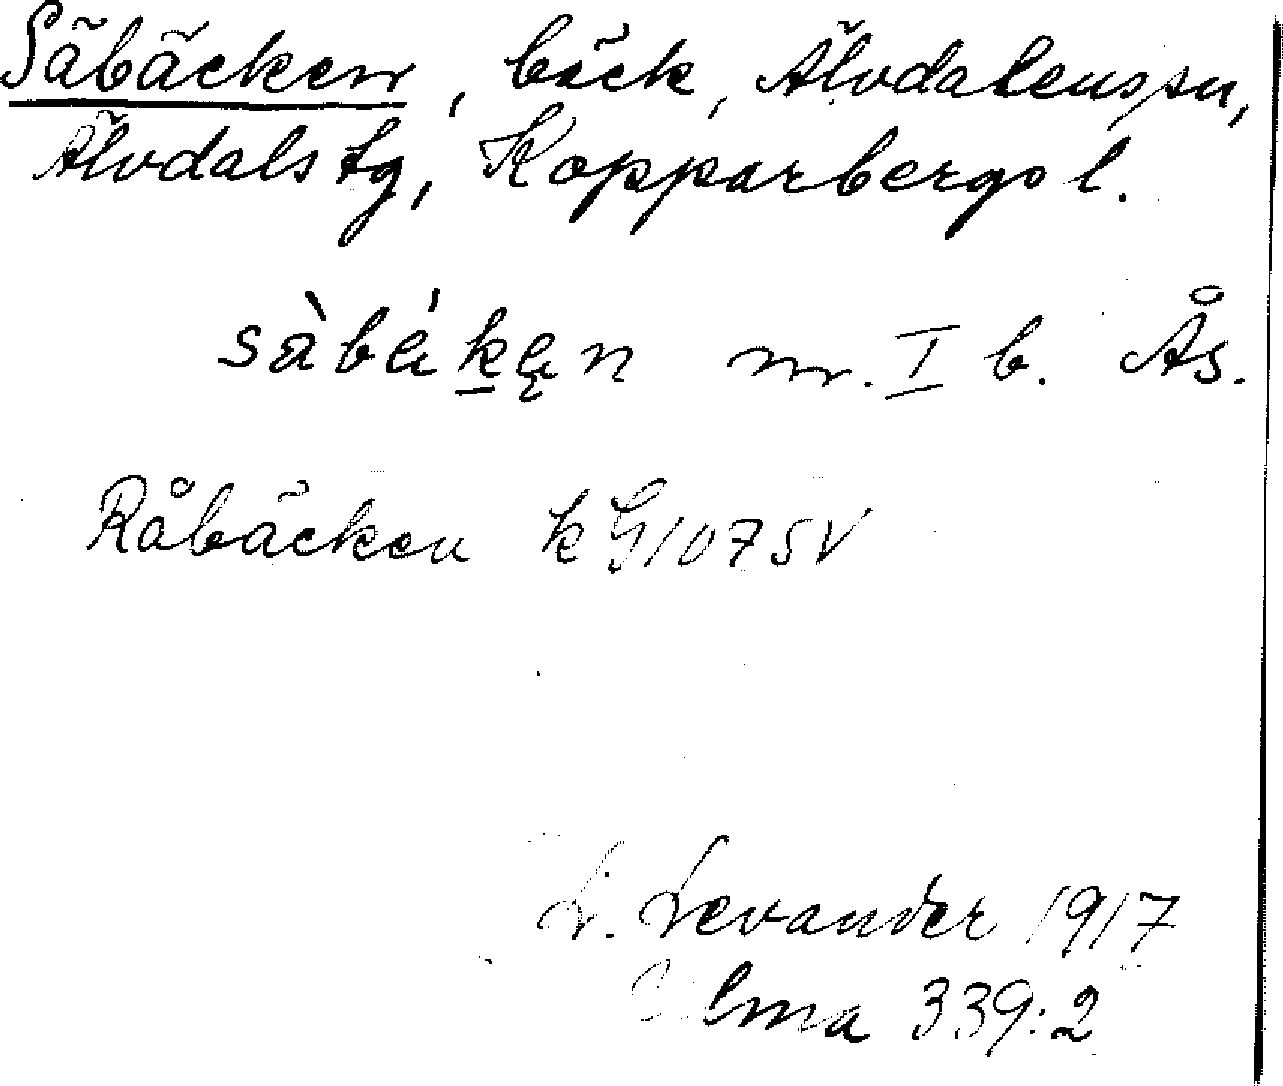 Säbäcken, bäck, Älvdalens sn,
Älvdals tg, Kopparbergs l.
sàbák̲ąn m. I b. Ås.
Råbäcken k G 107 SV
L. Levander 1917
Ulma 339:2